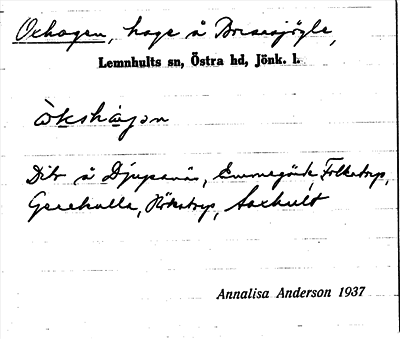 Oxhagen, hage å Bressjögle,
Lemnhults sn, Östra hd, Jönk. l.
ókshàgan
Dito å Djupanäs, Emmegärde, Folkatorp,
Gerehulla, Röketorp, Saxhult
Annalisa Anderson 1937